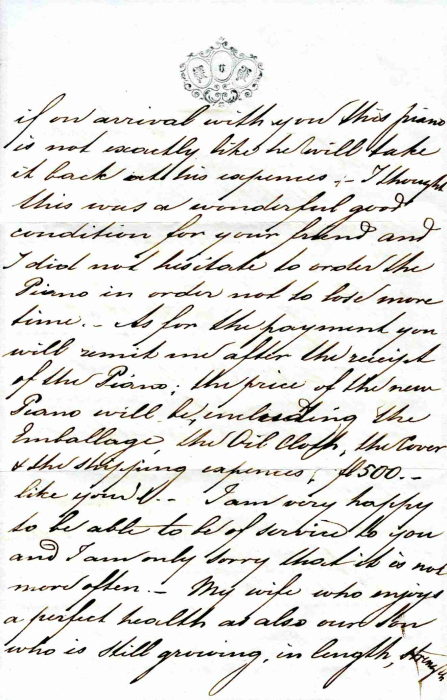 if on arrival with you this piano
is not exactly like he will take
it back at his expences; – I thought
this was a wonderful good
condition for your friend and
I did not hesitate to order the
Piano in order not to lose more
time. – As for the payment you
will remit me after the receipt
of the Piano; the price of the new
Piano will be, including the
Emballage, the Oil Cloth, the Cover
& the shipping expences, fl 500. –
like your's. – I am very happy
to be able to be of service to you
and I am only sorry that it is not
more often. – My wife who enjoys
a perfect health as also our Son
who is still growing, in length,